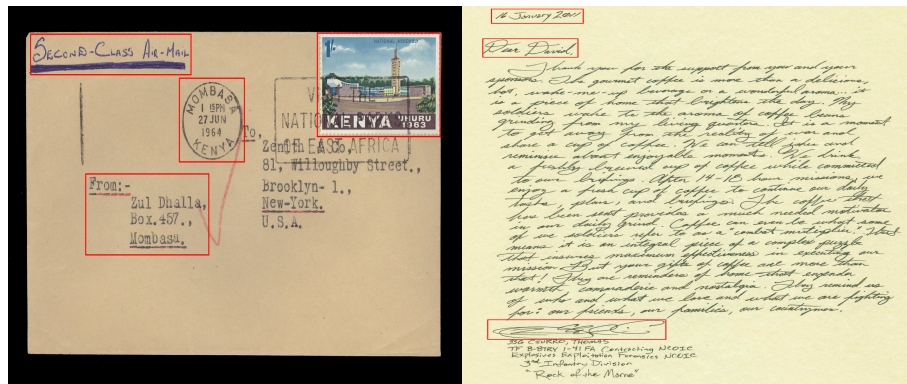 SECOND-CLASS AIR-MAIL
1/-
NATIONAL ASSEMBLY
KENYA UHURU 1963
MOMBASA
1 15PM
27 JUN
1964
KENYA
VISIT THE
NATIONAL
OF EAST AFRICA
To,
Zenith & Co.,
81, Willoughby Street.,
Brooklyn- 1.,
New-York.
U.S.A.
From:-
Zul Dhalla,
Box.457.,
Mombasa.
16 January 2011
Dear David,
Thank you for the support from you and your
sponsors. The gourmet coffee is more than a delicious,
hot, wake-me-up beverage or a wonderful aroma... it
is a piece of home that brightens the day. My
soldiers awake to the aroma of coffee beans
grinding from my living quarters. It is a moment
to get away from the reality of war and
share a cup of coffee. We can tell jokes and
reminisce about enjoyable moments. We drink
a freshly brewed cup of coffee while committed
to our briefings. After 14-18 hour missions, we
enjoy a fresh cup of coffee to continue our daily
tasks, plans, and briefings. The coffee that
has been sent provides a much needed motivator
in our daily grind. Coffee can even be what some
of we soldiers refer to as a "combat multiplier." That
means it is an integral piece of a complex puzzle
that insures maximum effectiveness in executing our
mission. But your gifts of coffee are more than
that! They are reminders of home that engender
warmth, camaraderie and nostalgia. They remind us
of who and what we love and what we are fighting
for: our friends, our families, our countrymen.
SSG COURRO, THOMAS
TF B-BTRY 1-41 FA Contracting NCOIC
Explosives Exploitation Forensics NCOIC
3rd Infantry Division
"Rock of the Marne"